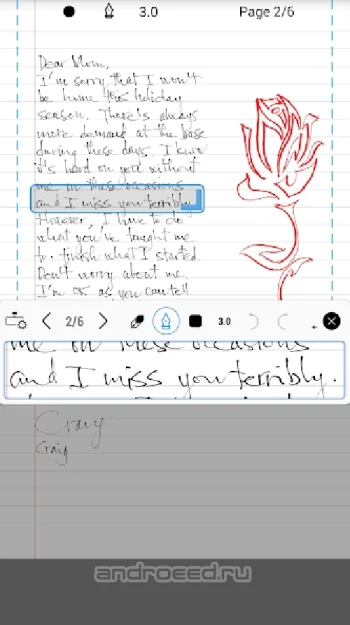 3.0 Page 2/6
Dear Mom,
I'm sorry that I won't
be home this holiday
season. There's always
more demand at the base
during these days. I know
it's hard on you without
me in these occasions
and I miss you terribly.
However, I have to do
what you've taught me
to. finish what I started.
Don't worry about me.
I'm OK as you can tell
2/6 3.0
me in these occasions
and I miss you terribly.
Craig
Craig
androeed.ru